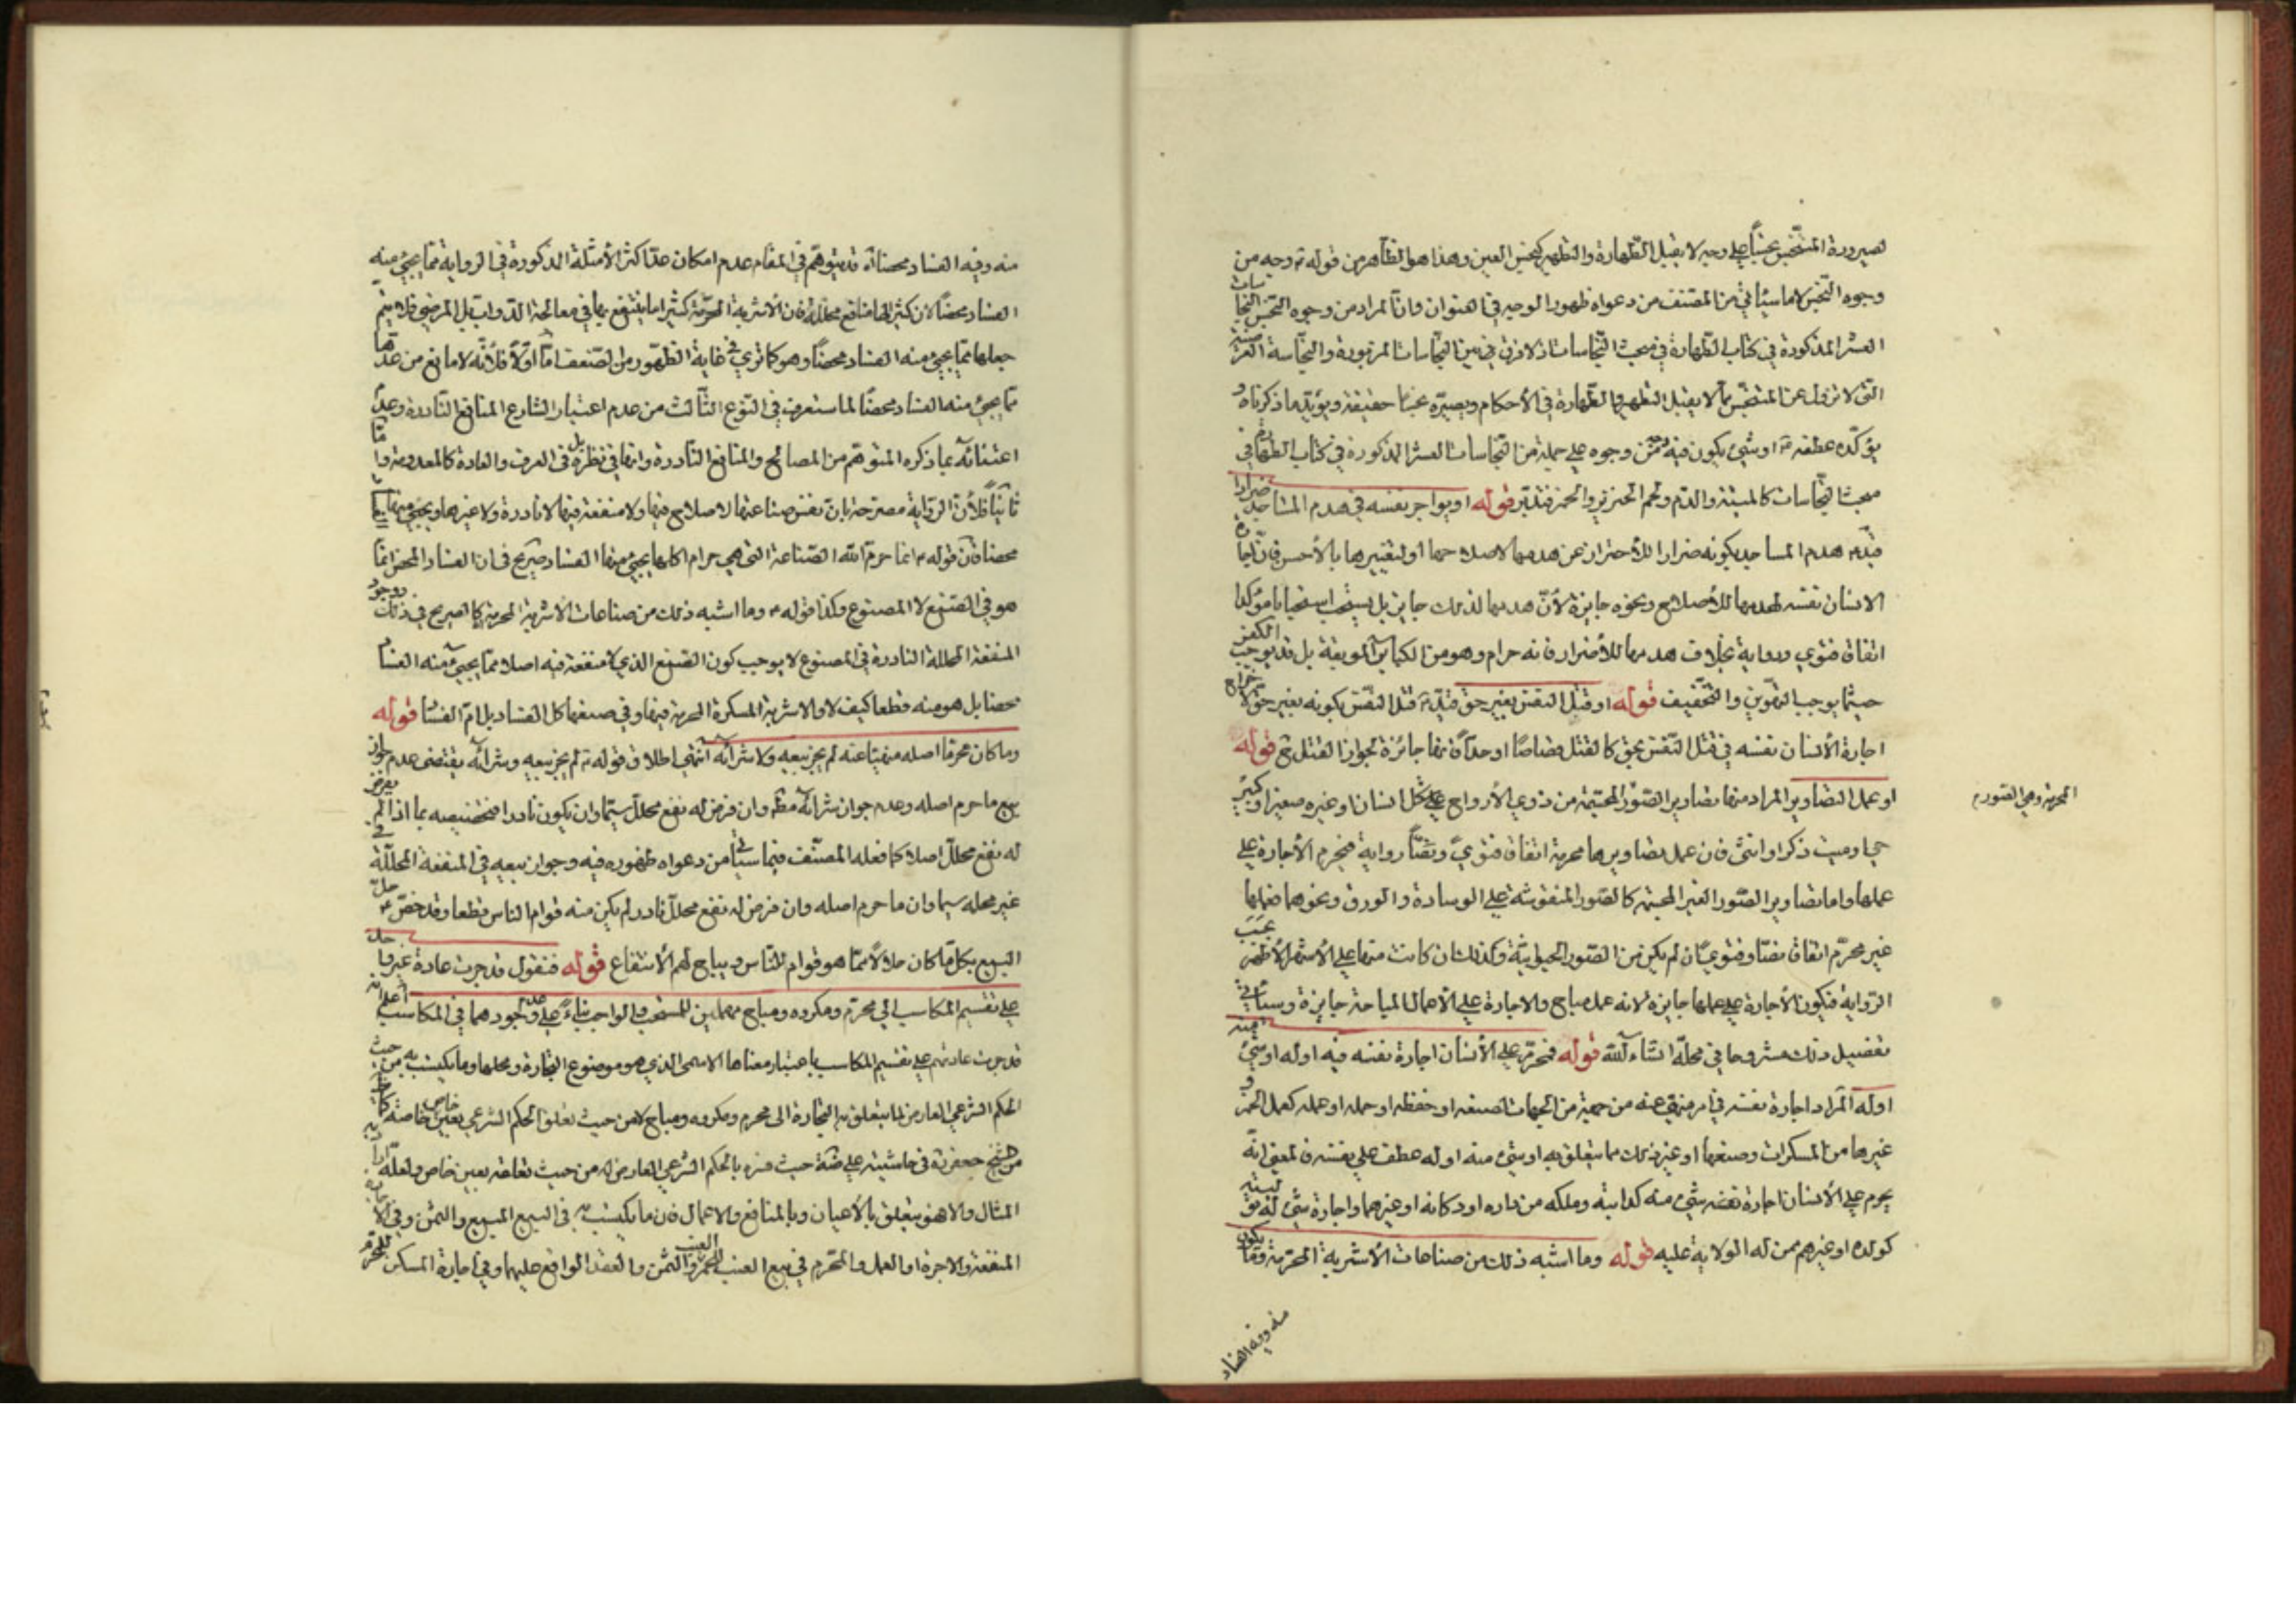 لصيرورة المتنجّس نجسًا على وجه لا يقبل الطّهارة والتطهير كنجس العين وهذا هو الظّاهر من قوله ع وجه من
وجوه النّجس لا ما سيأتي من المصنف من دعواه ظهور الوجه في العنوان وانّ المراد من وجوه النّجس النجاسات
العشر المذكورة في كتاب الطّهارة في مبحث النّجاسات اذ لا فرق في بين النّجاسات المزبورة والنّجاسة العرضيّة
التي لا تزول عن المتنجّس مما لا يقبل التطهير والطّهارة في الأحكام ويصيّره نجسًا حقيقة ويؤيّد ما ذكرناه و
يؤكّده عطفه ع او شيء يكون فيه وجه من وجوه على جملة من النّجاسات العشر المذكورة في كتاب الطهارة في
مبحث النّجاسات كالميتة والدّم ولحم الخنزير والخمر فتدبّر قوله او يواجر نفسه في هدم المساجد ضرارا
قيّد ع هدم المساجد بكونه ضرارا للأحتراز عن هدمها لاصلاحها او لتغييرها بالأحسن فانّ اجارة
الانسان نفسه لهدمها للأصلاح ونحوه جايزة لأنّ هدمها لذلك جايز بل يستحب استحبابا مؤكدا
اتفاق فتوى ورواية بخلاف هدمها للأضرار فانه حرام وهو من الكبائر الموبقة بل قد يوجب الكفر
حيثما يوجب التّوهين والتّخفيف قوله او قتل النفس بغير حق قيّد ع قتل النّفس بكونه بغير حق لاخراج
اجارة الأنسان نفسه في قتل النّفس بحق كالقتل قصاصًا او حدًّا فانّها جائزة لجواز القتل ح قوله
او عمل التصاوير المراد منها تصاوير الصّور المجسّمة من ذوي الأرواح على شكل انسان او غيره صغير او كبير
المحرمة وهي الصّور م
حي او ميت ذكر او انثى فان عمل تصاويرها محرمة اتفاق فتوىً ونصًّا رواية فتحرم الأجارة على
عملها واما تصاوير الصّور الغير المجسمة كالصّور المنقوشة على الوسادة والورق ونحوهما فعملها
غير محرّم اتفاق نصّا وفتوى ان لم يكن من الصّور الحيوانيّة وكذلك ان كانت منها على الأشهر الأظهر بحسب
الرّواية فيكون الأجارة على عملها جايزة لانه عمل مباح والاجارة على الأعمال المباحة جايزة وسيأتي
تفصيل ذلك مشروحا في محلّه انشاء اللّه قوله فيحرم على الأنسان اجارة نفسه فيه او له او شيء منه
او له المراد اجارة نفسه في امر منهي عنه من جهة من الجهات لصنعه او حفظه او حمله او عمله كعمل الخمر و
غيرها من المسكرات وصنعها او غير ذلك مما يتعلق به او شيء منه او له عطف على نفسه فالمعنى انّه
يحرم على الأنسان اجارة نفسه شيء منه كدابته وملكه من داره او دكانه او غيرهما واجارة شيء له
كولده او غيرهم ممن له الولاية عليه قوله وما اشبه ذلك من صناعات الأشربة المحرّمة وما يكون
منه وفيه الفساد
منه وفيه الفساد محضا انّه قد يتوهّم في المقام عدم امكان عدّ اكثر الأمثلة المذكورة في الرواية ممّا يجيء منه
الفساد محضًا لان كثيرا لها منافع محلّلة فان الأشربة المحرّمة كثيرا ما ينتفع بها في معالجة الدّواب بل المرضى فلا يتم
جعلها ممّا يجيء منه الفساد محضًا وهو كما ترى في غاية الظّهور من الضّعف امّا اوّلًا فلأنّه لا مانع من عدّها
ممّا يجيء منه الفساد محضًا لما ستعرف في النّوع الثّالث من عدم اعتبار الشارع المنافع النّادرة وعدم
اعتنائه بما ذكره المتوهّم من المصالح والمنافع النّادرة وانها في نظره بل في العرف والعادة كالمعدومة وامّا
ثانيًا فلأنّ الرّواية مصرحة بان نفس صناعتها لا صلاح فيها ولا منفعة فيها لا نادرة ولا غيرها ويجيء منها الفساد
محضا فان قوله ع انما حرّم اللّه الصّناعة التي هي حرام كلها يجيء منها الفساد صريح في ان الفساد المحض انّما
هو في الصّنع لا المصنوع وكذا قوله ع وما اشبه ذلك من صناعات الأشربة المحرمة كالصريح في ذلك ووجود
المنفعة المحللة النادرة في المصنوع لا يوجب كون الصّنع الذي لا منفعة فيه اصلا ممّا يجيء منه الفساد
محضا بل هو منه قطعا كيف لا والاشربة المسكرة المحرمة فيها وفي صنعها كل الفساد بل امّ الفساد قوله
وما كان محرما اصله منهيّا عنه لم يجز بيعه ولا شرائه انتهى اطلاق قوله ع لم يجز بيعه وشرائه يقتضى عدم جواز
بيع ما حرم اصله وعدم جواز شرائه مطلقا وان فرض له نفع محلل سيّما وان يكون نادرا فتخصيصه بما اذا لم يفرض
له نفع محلّل اصلا كما فعله المصنّف فيما سيأتي من دعواه ظهوره فيه وجواز بيعه في المنفعة المحلّلة
غير محله سيما وان ما حرم اصله وان فرض له نفع محلل نادر لم يكن منه قوام الناس قطعا وقد خصّ ع حلّ
البيع بكل ما كان حلالًا ممّا هو قوام للنّاس ويباح لهم الأنتفاع قوله فنقول قد جرت عادة غير واحد
على تقسيم المكاسب الى محرّم ومكروه ومباح مهملين للمستحب والواجب بناءً على عدم وجودهما في المكاسب اعلم انه
قد جرت عادتهم على تقسيم المكاسب باعتبار معناها الاسمى الذي هو موضوع التّجارة ومحلها وما يكتسب به من حيث
الحكم الشرعي العارض لما يتعلق به التّجارة الى محرم ومكروه ومباح لا من حيث تعلق الحكم الشرعي بعين خاص خاصة
الشيخ جعفر في حاشيته على حيث فسّره بالحكم الشّرعي العارض له من حيث تعلقه بعين خاص ولعلّه اراد
المثال والا فهو يتعلق بالأعيان وبالمنافع والاعمال فان ما يكتسب به في البيع المبيع والثمن وفي الاجارة
المنفعة والاجرة او العمل والمحرّم في بيع العنب للخمر العنب والثّمن والعقد الواقع عليهما وفي اجارة المسكن للمحرّم